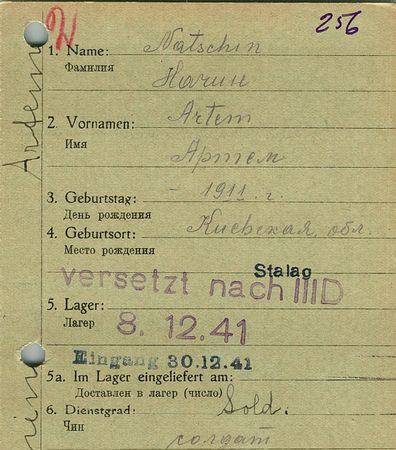 256
1. Name: Natschin
Фамилия Начин
2. Vornamen: Artem
Имя
Артем
3. Geburtstag: - 1911 г.
День рождения
4. Geburtsort: Киевская обл.
Место рождения
Stalag
versetzt nach IIID
5. Lager:
Лагер 8. 12. 41
Eingang 30.12.41
5a. Im Lager eingeliefert am:
Доставлен в лагер (число)
6. Dienstgrad: Sold.
Чин
солдат